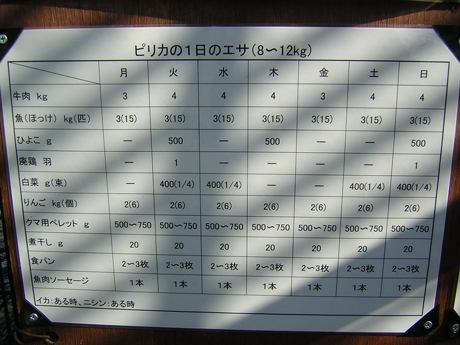 ピリカの1日のエサ(8〜12kg)
月 火 水 木 金 土 日
牛肉 kg 3 4 4 4 3 4 4
魚(ほっけ) kg(匹) 3(15) 3(15) 3(15) 3(15) 3(15) 3(15) 3(15)
ひよこ g ― 500 ― 500 ― ― 500
廃鶏 羽 ― 1 ― ― ― ― 1
白菜 g(束) ― 400(1/4) 400(1/4) ― ― 400(1/4) 400(1/4)
りんご kg(個) 2(6) 2(6) 2(6) 2(6) 2(6) 2(6) 2(6)
クマ用ペレット g 500〜750 500〜750 500〜750 500〜750 500〜750 500〜750 500〜750
煮干し g 20 20 20 20 20 20 20
食パン 2〜3枚 2〜3枚 2〜3枚 2〜3枚 2〜3枚 2〜3枚 2〜3枚
魚肉ソーセージ 1本 1本 1本 1本 1本 1本 1本
イカ:ある時、ニシン:ある時